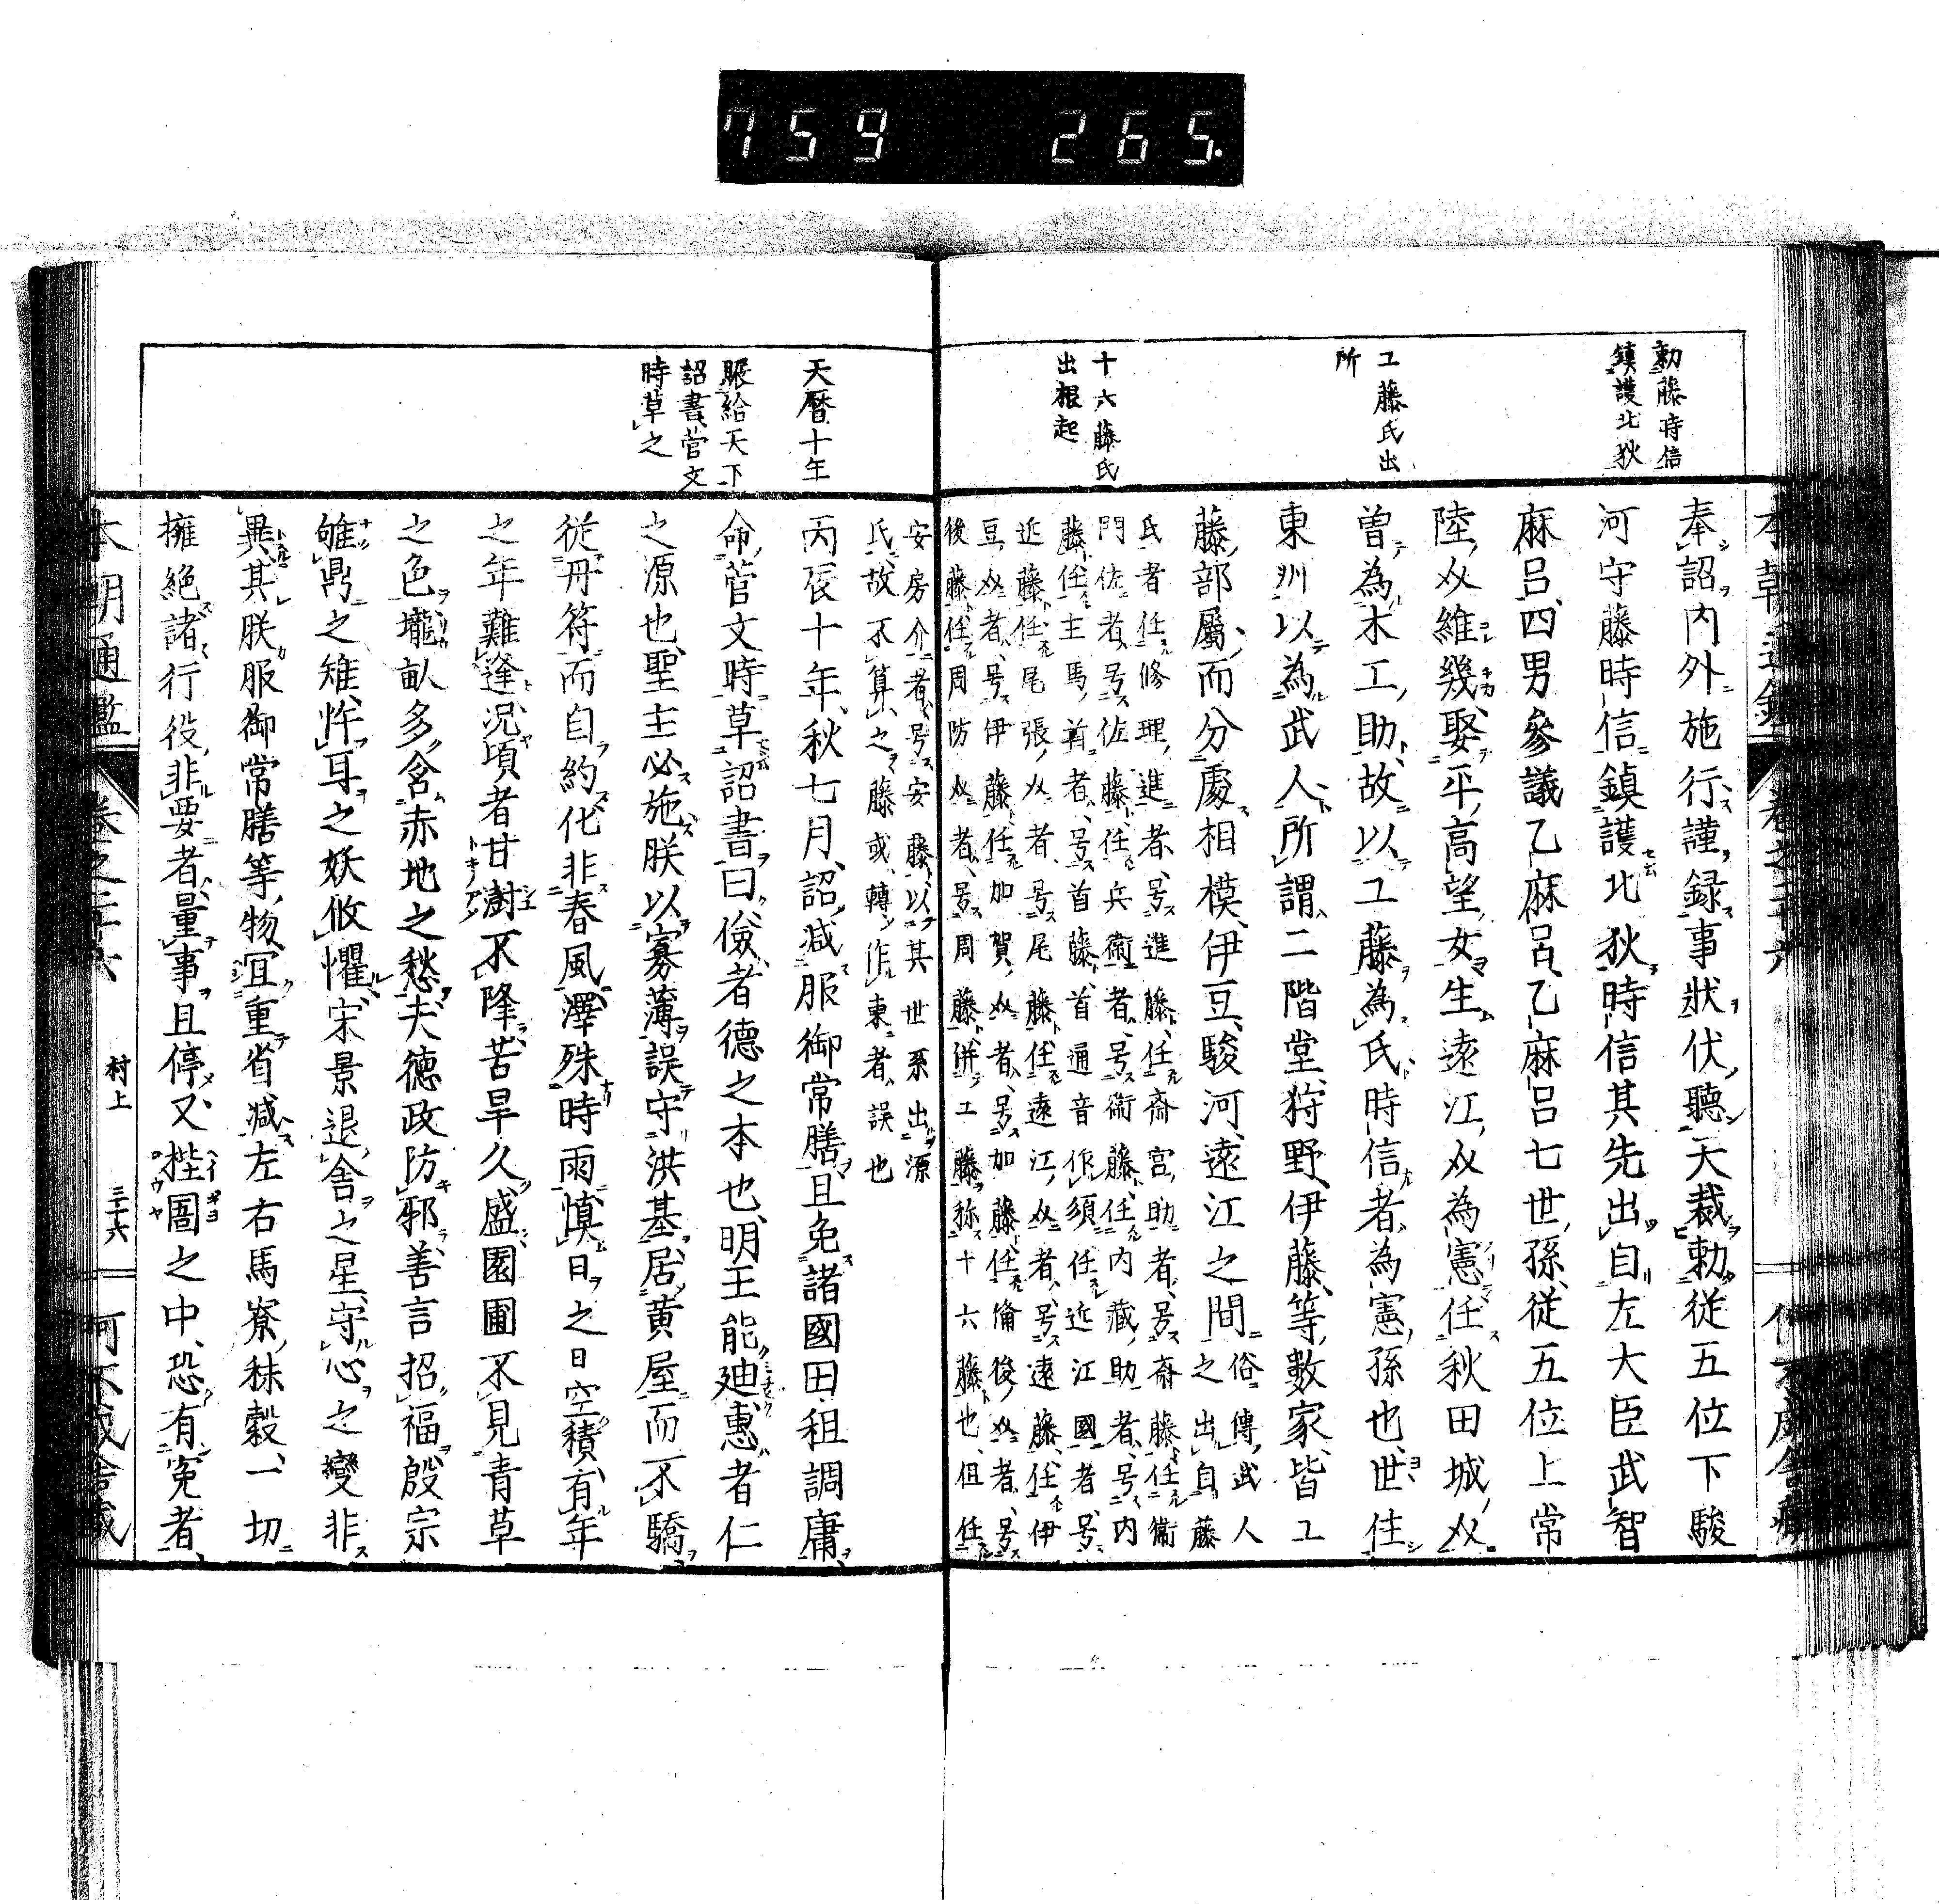 759 265.
勅藤時信
鎮護北狄
工藤氏出
所
十六藤氏
出根起
奉詔内外施行謹録事狀伏聽天裁勅從五位下駿
河守藤時信鎮護北狄時信其先出自左大臣武智
麻呂四男參議乙麻呂乙麻呂七世孫從五位上常
陸介維幾娶平高望女生遠江介為憲任秋田城介
曽為木工助故以工藤為氏時信者為憲孫也世住
東州以為武人所謂二階堂狩野伊藤等數家皆工
藤部屬而分處相模伊豆駿河遠江之間
俗傳武人
之出自藤
氏者任修理進者号進藤任齋宮助者号齋藤任衞
門佐者号佐藤任兵衞者号衞藤任内藏助者号内
藤任主馬首者号首藤首通音作須任近江國者号
近藤任尾張介者号尾藤任遠江介者号遠藤任伊
豆介者号伊藤任加賀介者号加藤任備後介者号
後藤任周防介者号周藤併工藤称十六藤也但任
安房介者号安藤以其世系出源
氏故不算之藤或轉作東者誤也
天曆十年
賑給天下
詔書菅文
時草之
丙辰十年秋七月詔减服御常膳且免諸國田租調庸
命菅文時草詔書曰儉者德之本也明王能廸惠者仁
之源也聖主必施朕以寡薄誤守洪基居黄屋而不驕
從丹符而自約化非春風澤殊時雨慎日之日空積有年
之年難逢況頃者甘澍不降苦旱久盛園圃不見青草
之色壠畝多含赤地之愁夫德政防邪善言招福殷宗
雊鼎之雉怍耳之妖攸懼宋景退舎之星守心之變非
異其朕服御常膳等物宜重省减左右馬寮秣穀一切
擁絶諸行役非要者量事且停又狴圄之中恐有寃者
本朝通鑑 卷之二十六 村上 三十六